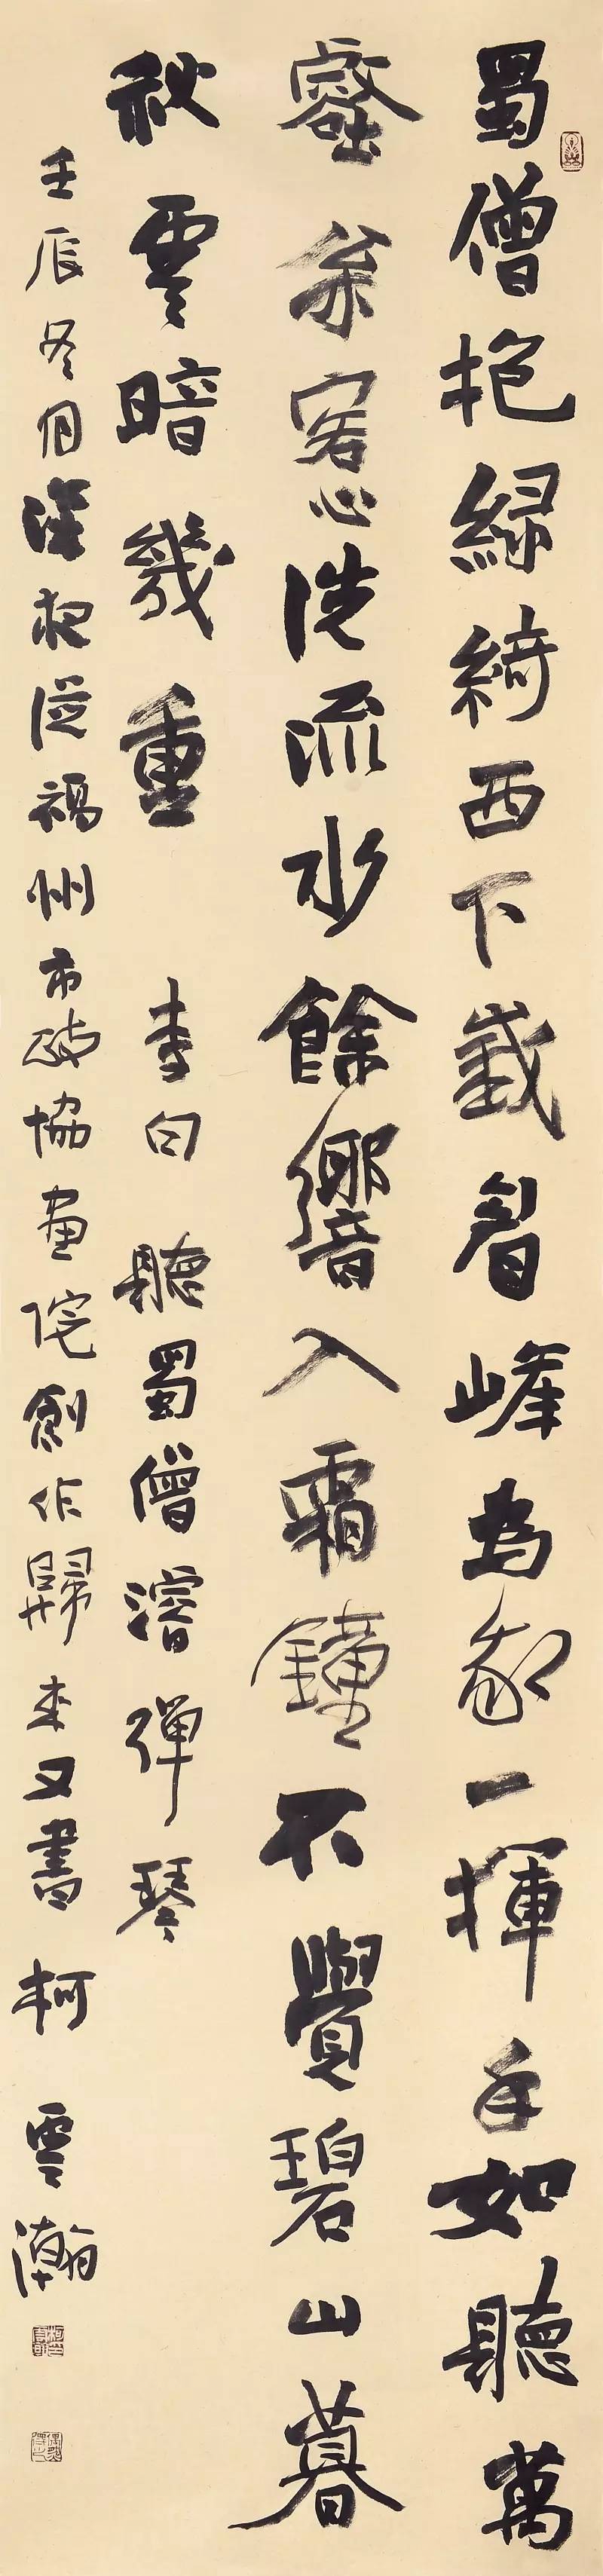 蜀僧抱緑綺西下峩眉峰為我一揮手如聽萬
壑枀客心洗流水餘響入霜鐘不覺碧山暮
秋雲暗幾重 李白 聽蜀僧濬彈琴
壬辰冬月深夜從福州市政協畫院創作歸來又書 柯雲瀚